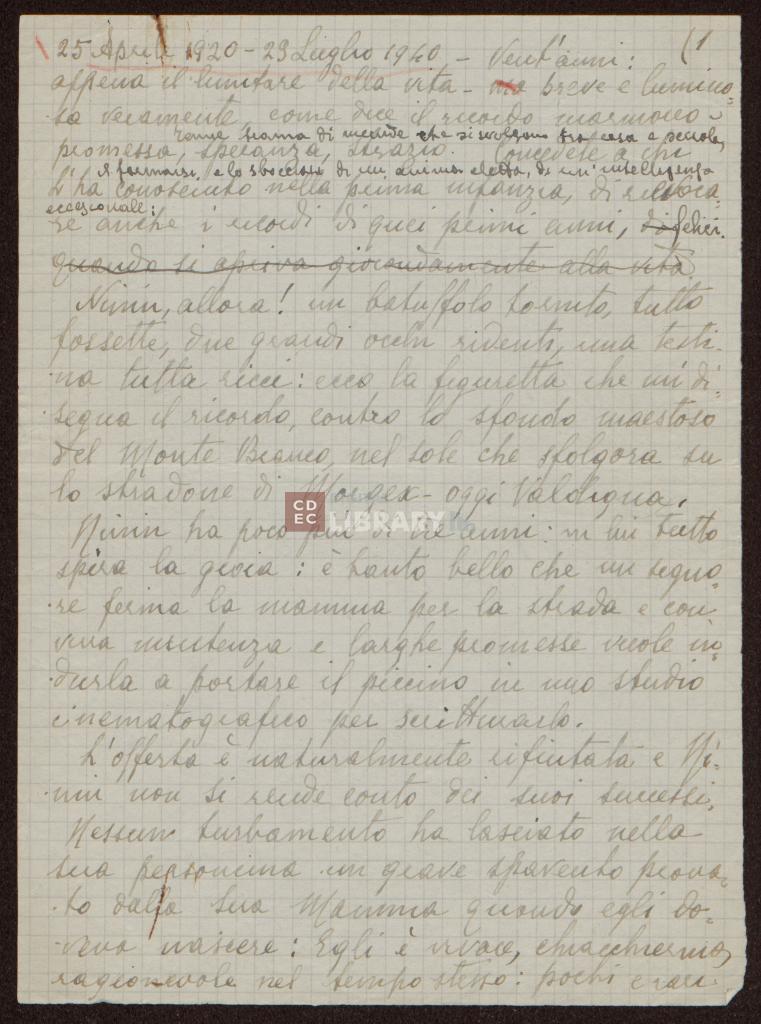 25 Aprile 1920 - 23 Luglio 1940 - Vent'anni: (1
appena il limitare della vita - ma breve e lumino=
sa veramente, come dice il ricordo marmoreo -
trama di vicende che si svolgono fra casa e scuola,
promessa, speranza, strazio. Concedete a chi
il formarsi, e lo sbocciare di un'anima eletta, di un'intelligenza
l'ha conosciuto nella prima infanzia, di rievoca=
eccezionale:
re anche i ricordi di quei primi anni, di felici.
quando si apriva giocondamente alla vita.
Ninin, allora! un batuffolo tornito, tutto
fossette, due grandi occhi ridenti, una testi=
na tutta ricci: ecco la figuretta che mi di=
segna il ricordo, contro lo sfondo maestoso
del Monte Bianco, nel sole che sfolgora su
lo stradone di Morgex - oggi Valdigna.
Ninin ha poco più di tre anni: in lui tutto
spira la gioia: è tanto bello che un signo=
re ferma la mamma per la strada e con
viva insistenza e larghe promesse vuole in=
durla a portare il piccino in uno studio
cinematografico per scritturarlo.
L'offerta è naturalmente rifiutata e Ni=
nin non si rende conto dei suoi successi.
Nessun turbamento ha lasciato nella
sua personcina un grave spavento prova=
to dalla sua Mamma quando egli do=
veva nascere: Egli è vivace, chiacchierino,
ragionevole nel tempo stesso: pochi e rari
CD
EC
LIBRARY